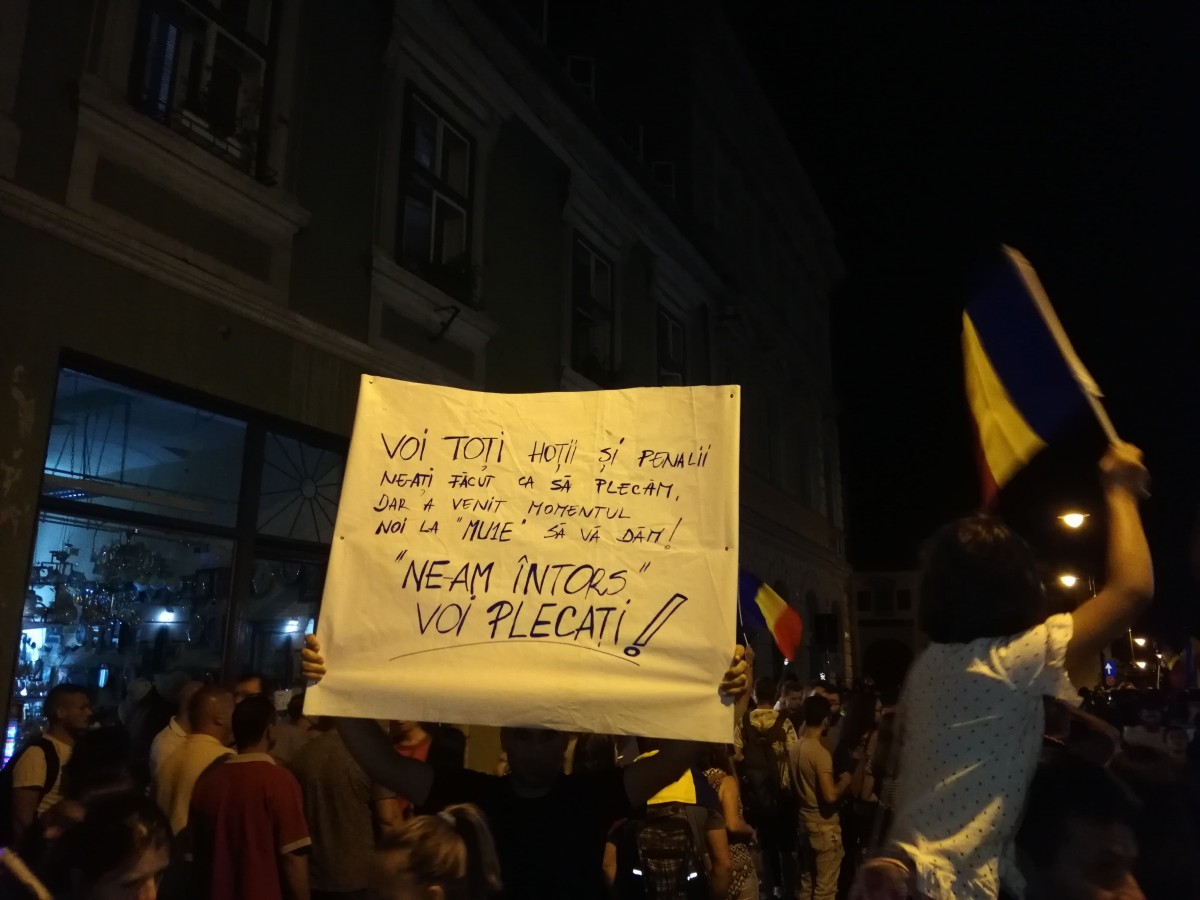 VOI TOȚI HOȚII ȘI PENALII
NE-AȚI FĂCUT CA SĂ PLECĂM,
DAR A VENIT MOMENTUL
NOI LA "MU1E" SĂ VĂ DĂM!
"NE-AM ÎNTORS"
VOI PLECAȚI!